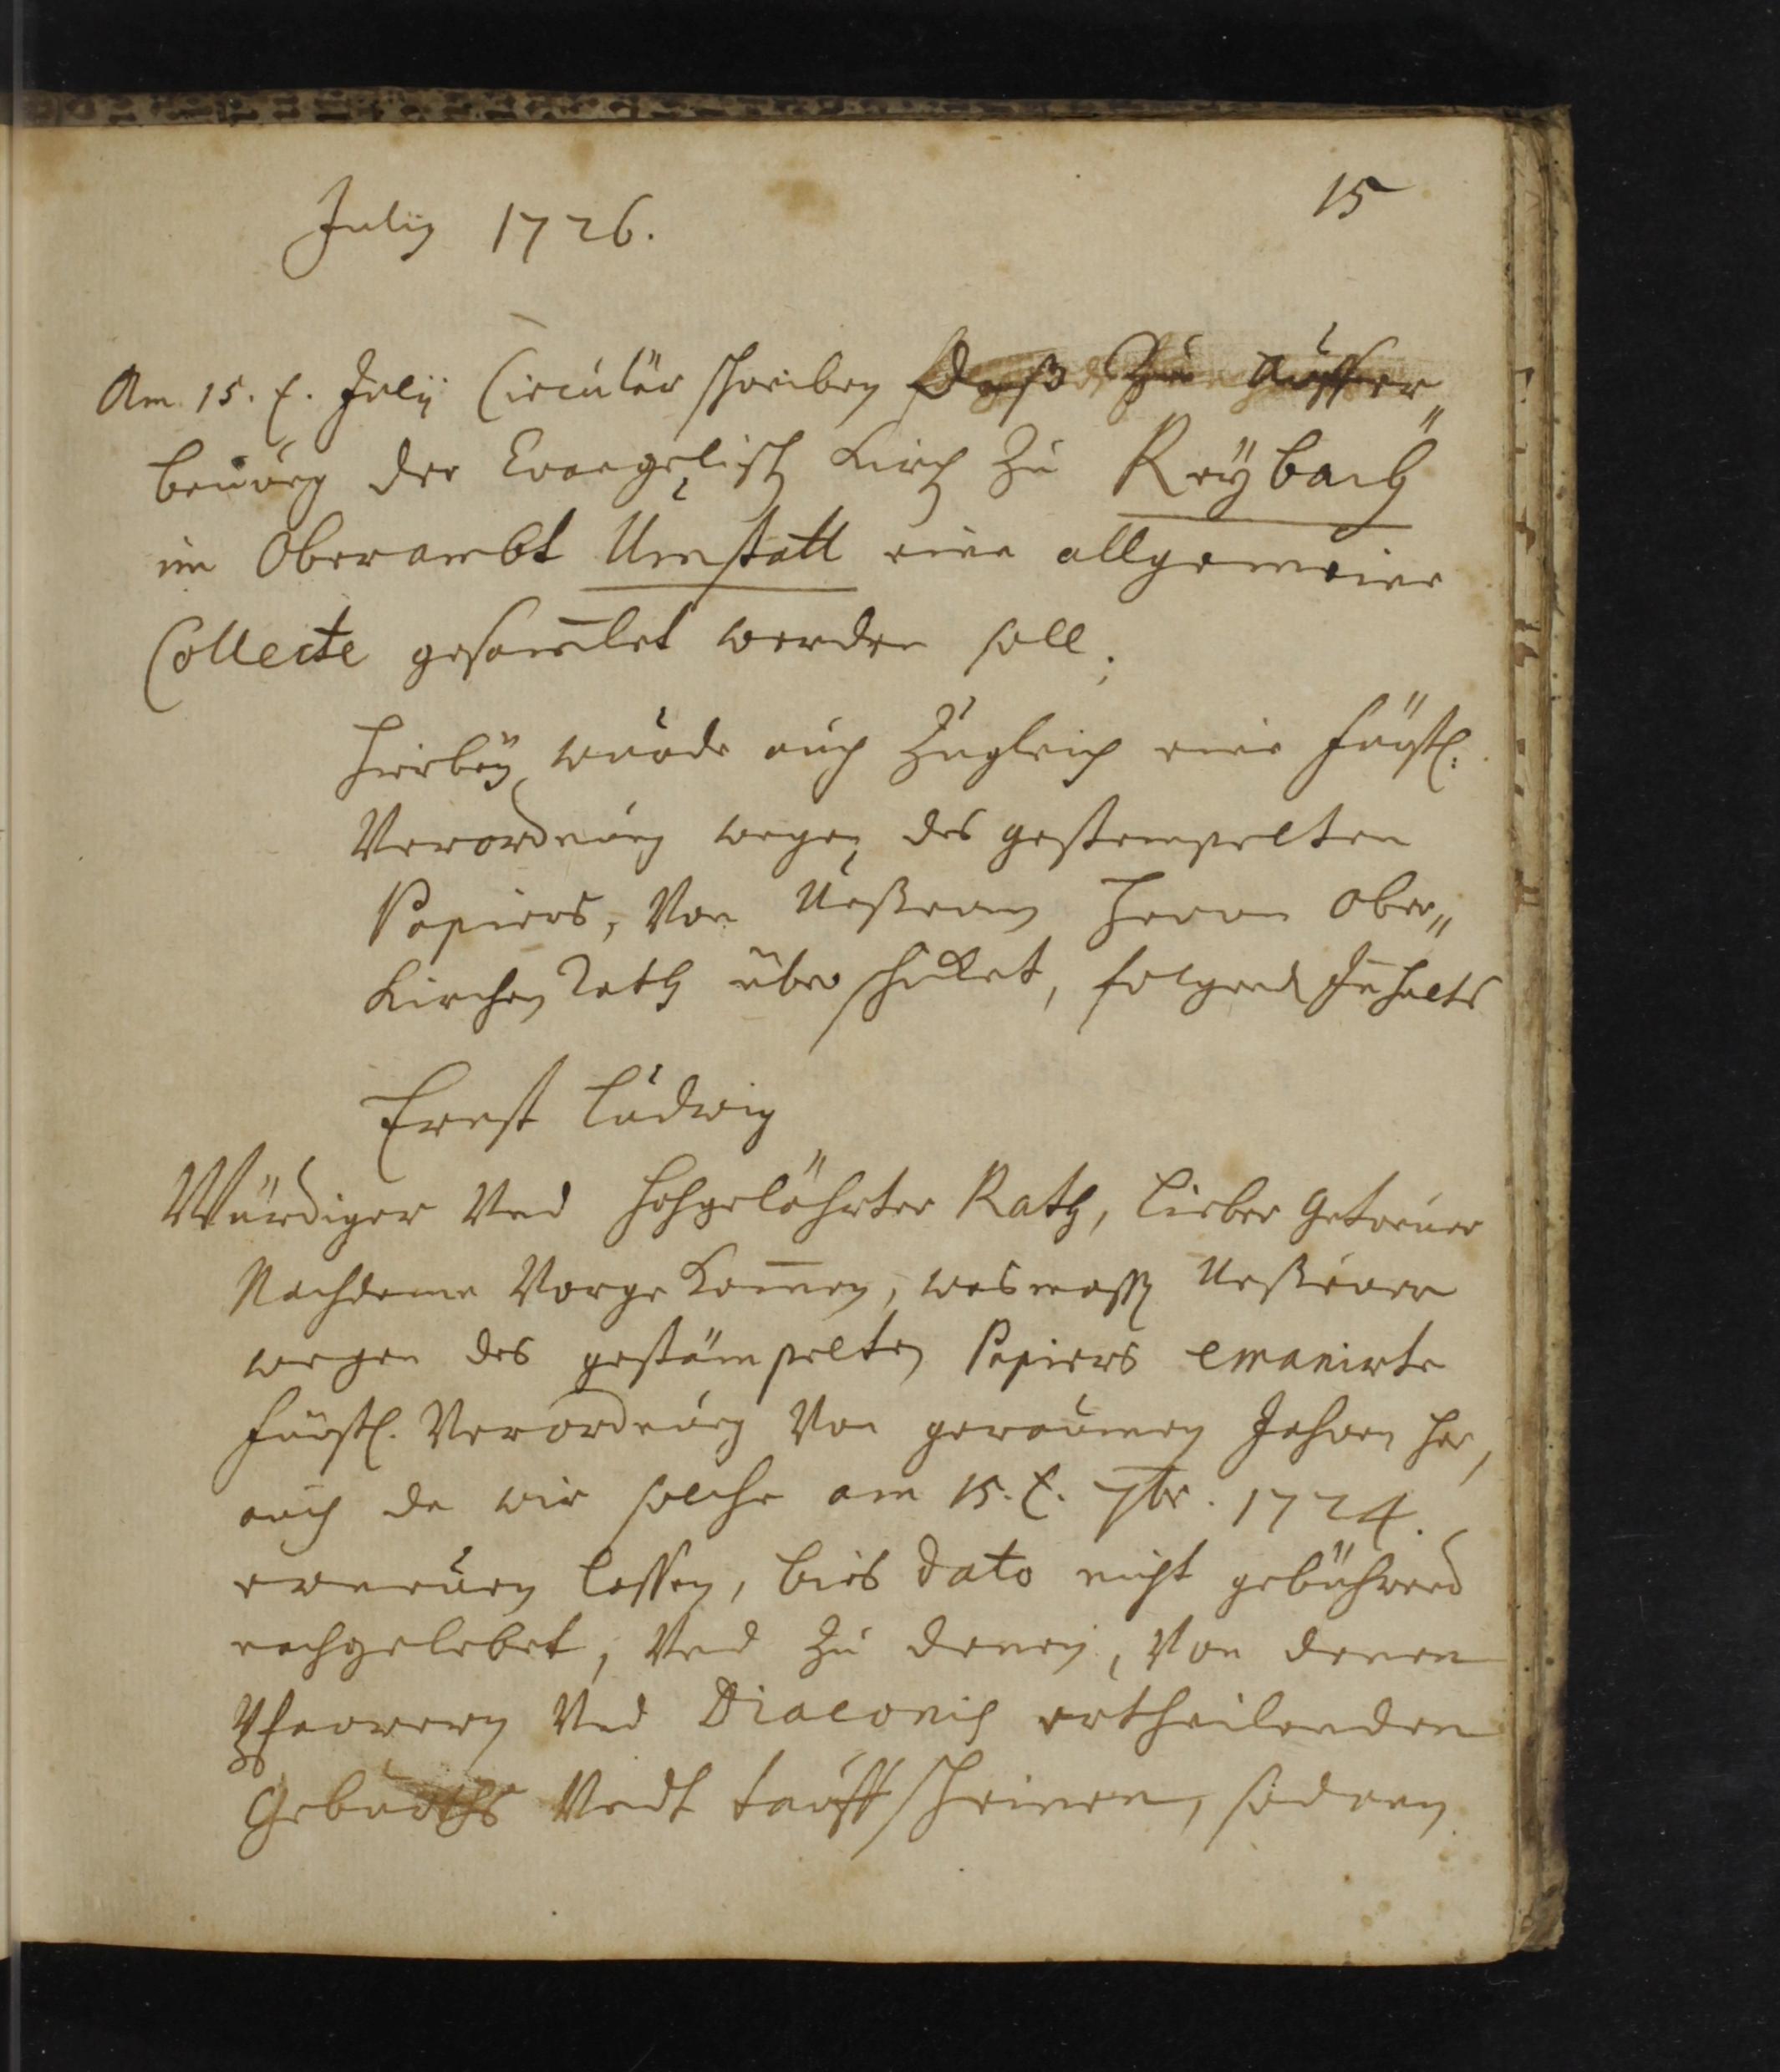 15
Julij 1726.
Am 15. t. Julij Circulär schreiben daß Zu Aufferˮ
bauung der Evangelisch Kirch Zu Reÿbach
im Oberambt Umstatt eine allgemeine
Collecte gesam̅let werden soll.
Hierbeÿ wurde auch Zugleich eine Fürstl:
Verordnung wegen des gestempelten
Papiers, Von Unßerem Herrn Oberˮ
Kirchen Rath überschicket, folgend Inhalts
Ernst Ludwig
Würdiger Und Hochgelährter Rath, Lieber Getreuer
Nachdeme Vorgekom̅en, wasmaß Unßerer
wegen des gestämpelten Papiers emanirte
Fürstl. Verordnung Von geraumen Jahren her,
auch da wir solche am 15. t. 7br. 1724.
erneuern lassen, bies dato nicht gebührend
nachgelebet, Und Zu denen, Von denen
Pfarrern Und Diaconis ertheilenden
Geburths Undt tauffscheinen, sodann